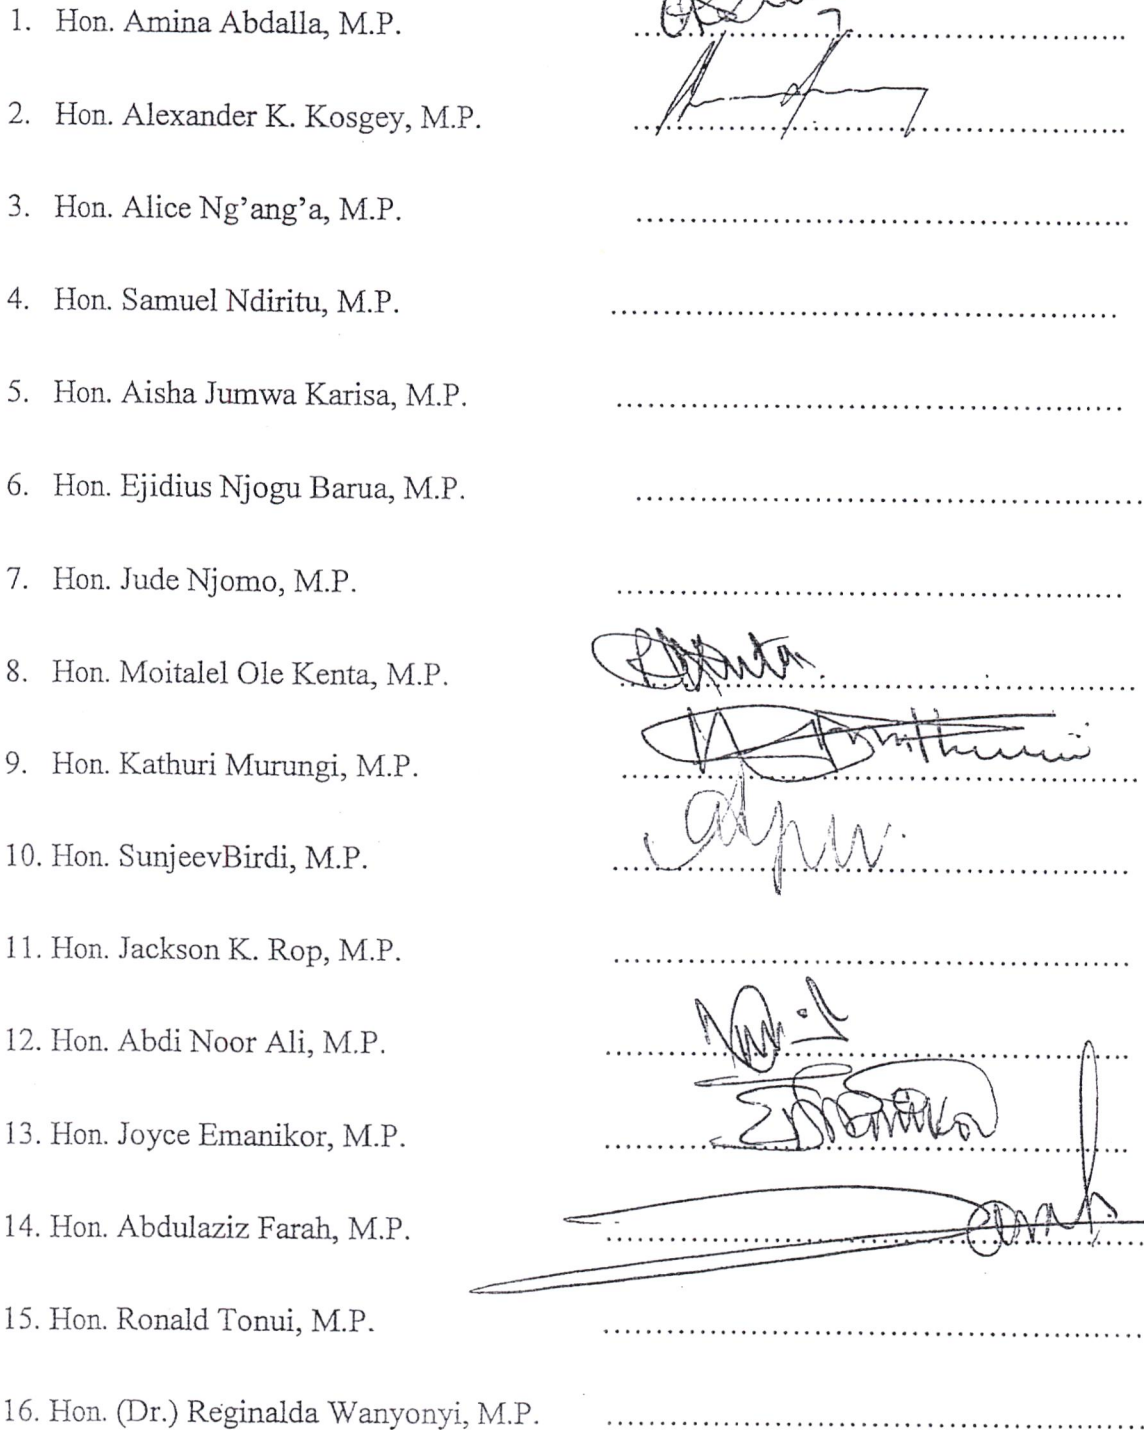 1. Hon. Amina Abdalla, M.P. ................................................
2. Hon. Alexander K. Kosgey, M.P. ................................................
3. Hon. Alice Ng’ang’a, M.P. ................................................
4. Hon. Samuel Ndiritu, M.P. ................................................
5. Hon. Aisha Jumwa Karisa, M.P. ................................................
6. Hon. Ejidius Njogu Barua, M.P. ................................................
7. Hon. Jude Njomo, M.P. ................................................
8. Hon. Moitalel Ole Kenta, M.P. ................................................
9. Hon. Kathuri Murungi, M.P. ................................................
10. Hon. SunjeevBirdi, M.P. ................................................
11. Hon. Jackson K. Rop, M.P. ................................................
12. Hon. Abdi Noor Ali, M.P. ................................................
13. Hon. Joyce Emanikor, M.P. ................................................
14. Hon. Abdulaziz Farah, M.P. ................................................
15. Hon. Ronald Tonui, M.P. ................................................
16. Hon. (Dr.) Reginalda Wanyonyi, M.P. ................................................